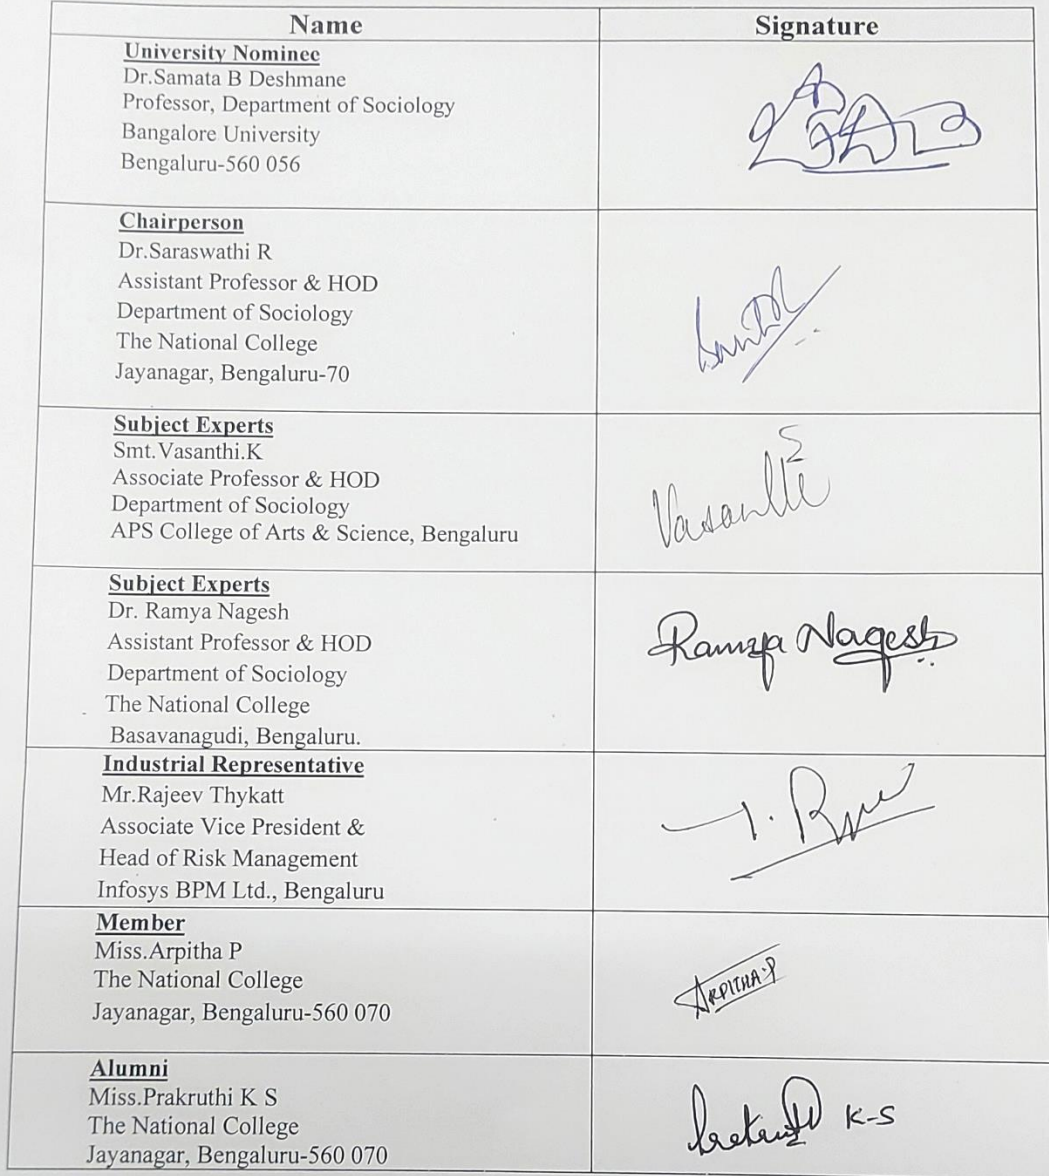 Name Signature
University Nominee
Dr.Samata B Deshmane
Professor, Department of Sociology
Bangalore University
Bengaluru-560 056
Chairperson
Dr.Saraswathi R
Assistant Professor & HOD
Department of Sociology
The National College
Jayanagar, Bengaluru-70
Subject Experts
Smt.Vasanthi.K
Associate Professor & HOD
Department of Sociology
APS College of Arts & Science, Bengaluru
Vasanthi
Subject Experts
Dr. Ramya Nagesh
Assistant Professor & HOD
Department of Sociology
The National College
Basavanagudi, Bengaluru.
Ramya Nagesh
Industrial Representative
Mr.Rajeev Thykatt
Associate Vice President &
Head of Risk Management
Infosys BPM Ltd., Bengaluru
Member
Miss.Arpitha P
The National College
Jayanagar, Bengaluru-560 070
ARPITHA.P
Alumni
Miss.Prakruthi K S
The National College
Jayanagar, Bengaluru-560 070
K-S